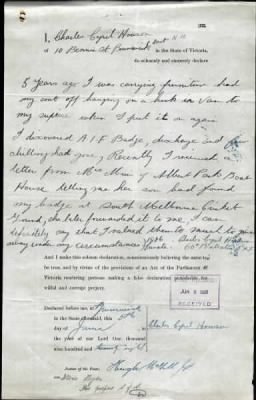 I, Charles Cyril Howson
of 10 Bennie St Brunswick West N 10
in the State of Victoria,
do solemnly and sincerely declare
5 Years ago I was carrying furniture had
my coat off hanging on a hook in Van to
my suprise when I put it on again
I discovered A I F Badge, discharge and
shilling had gone, Recently I received
letter from Mrs Muir of Albert Park Boat
House telling me her son had found
my badge at South Melbourne Cricket
Ground, she later forwarded it to me, I can
definitely say that I valued them to much to give
away under any circumstance
Charles Cyril Howson
And I make this solemn declaration, conscientiously believing the same to
be true, and by virtue of the provisions of an Act of the Parliament of
Victoria rendering persons making a false declaration punishable for
wilful and corrupt perjury.
RECEIVED
Declared before me, at Brunswick
in the State aforesaid, this
day of June
the year of our Lord One thousand
nine hundred and twenty eight
Charles Cyril Howson
Justice of the Peace. Hugh